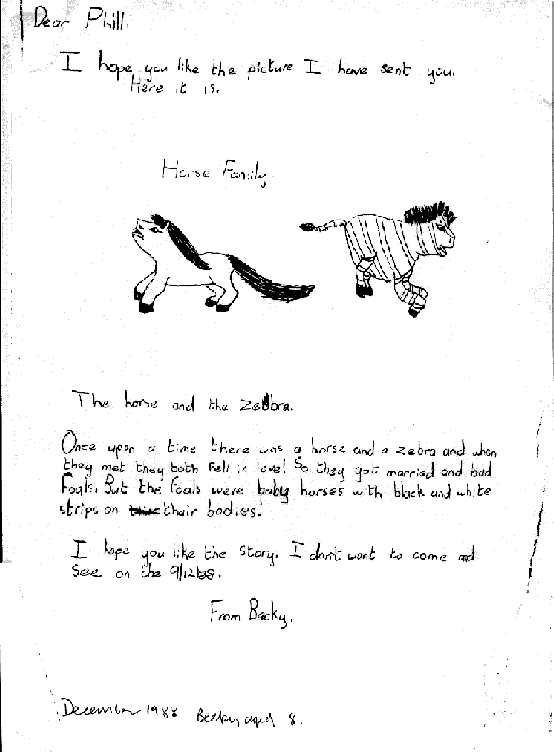 Dear Phill.
I hope you like the picture I have sent you.
Here it is.
Horse Family.
The horse and the zebra.
Once upon a time there was a horse and a zebra and when
they met they both fell in love! So they got married and had
foals. But the foals were baby horses with black and white
strips on thair bodies.
I hope you like the story. I don't want to come and
see on the 9/12/88.
From Becky.
December 1988 Becky aged 8.